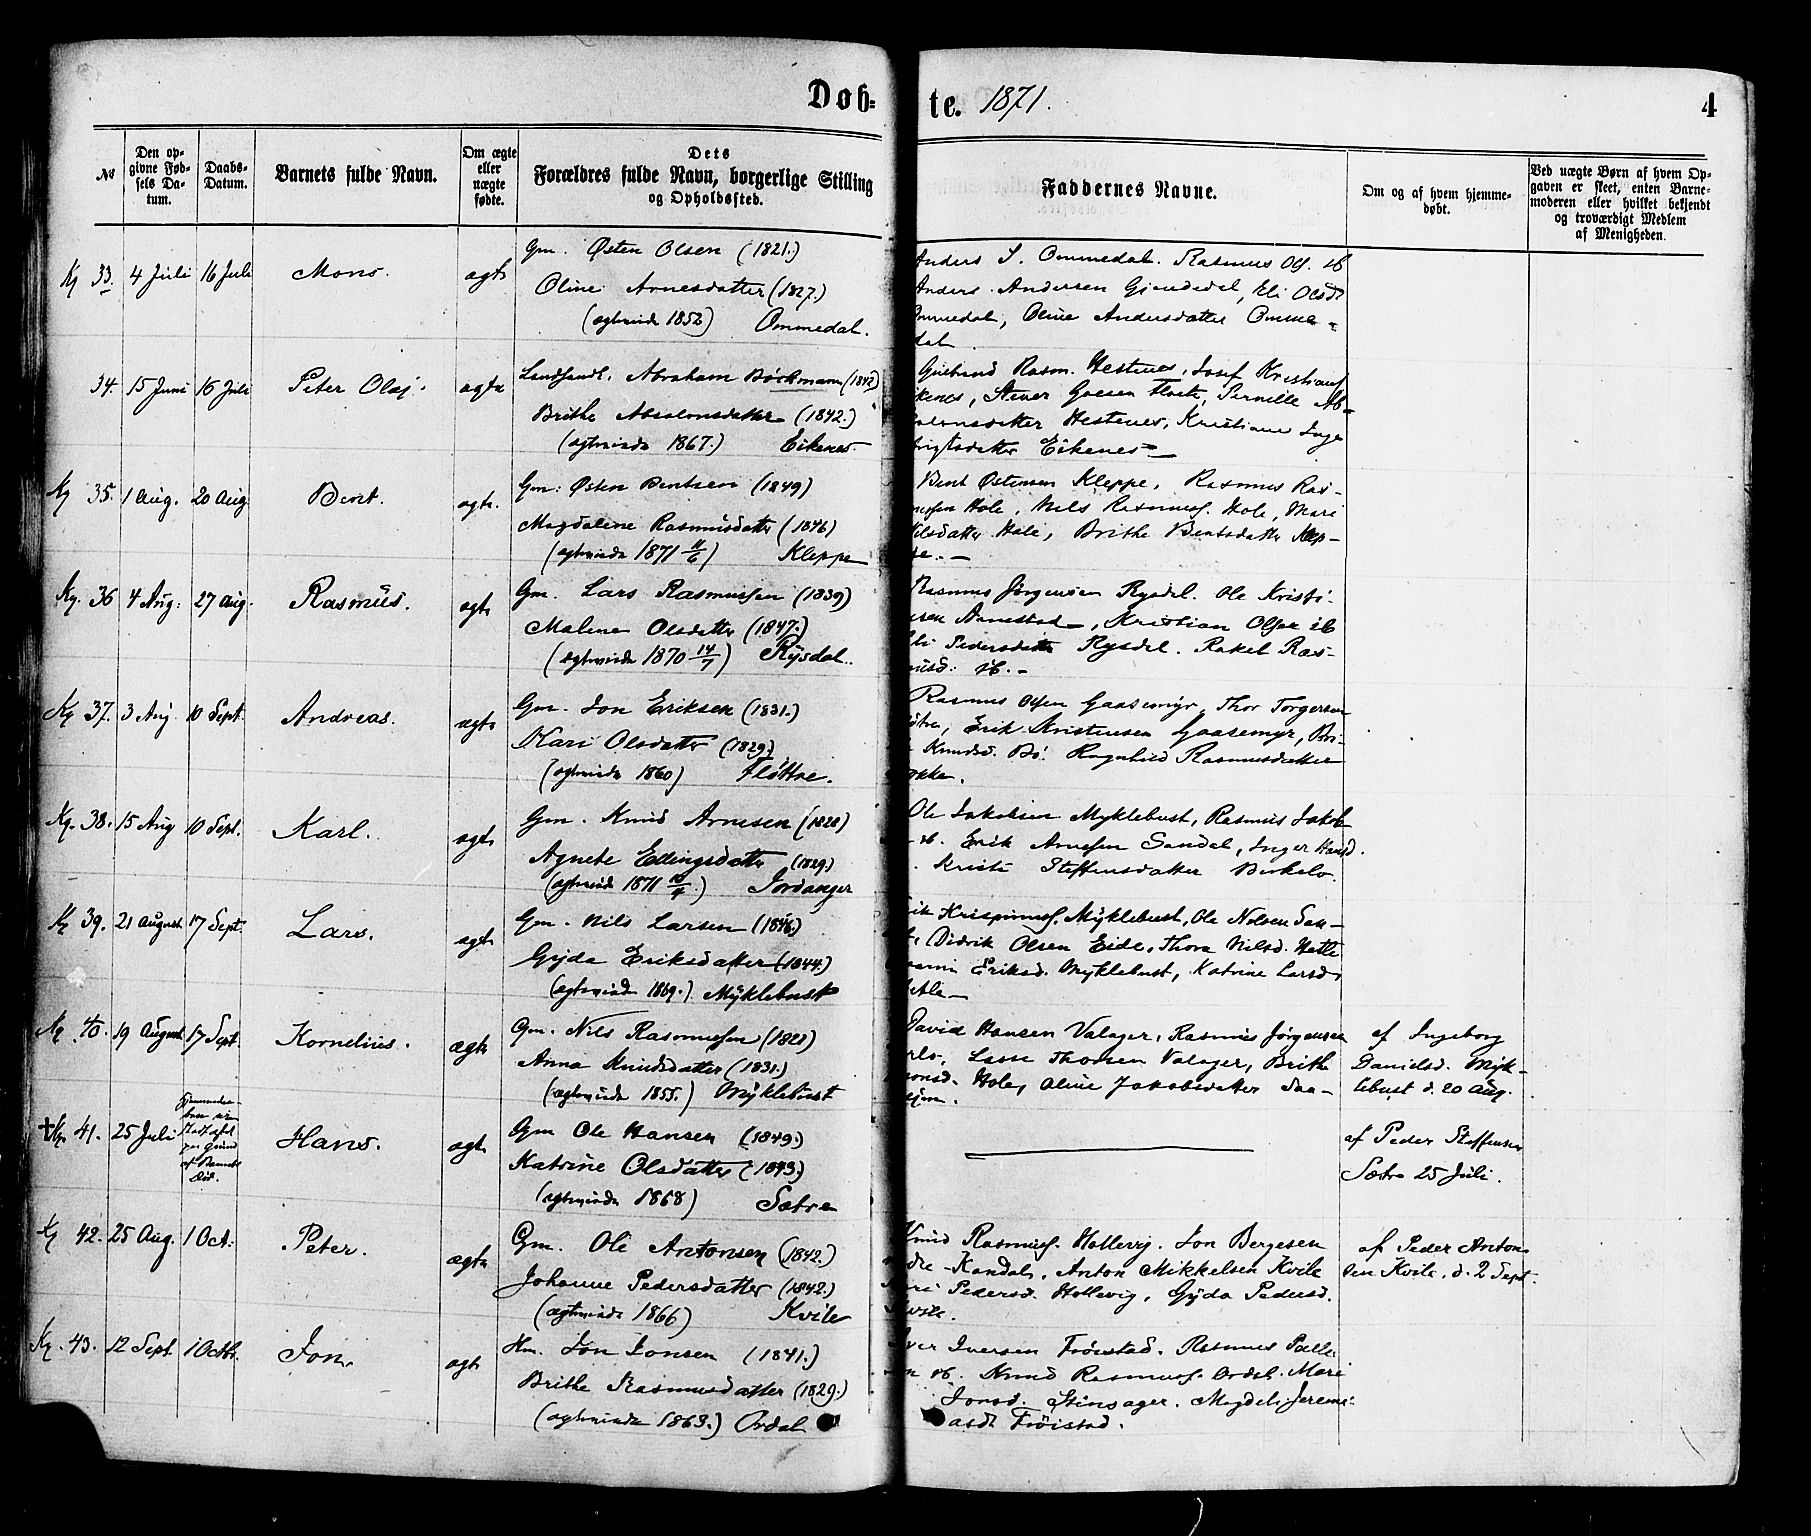 Døb=
te. 1871.
4
No
Den op-
givne Fød-
sels Da-
tum.
Daabs-
Datum.
Barnets fulde Navn.
Om ægte
eller
uægte
fødte.
Dets
Forældres fulde Navn, borgerlige Stilling
og Opholdssted.
Faddernes Navne.
Om og af hvem hjemme-
døbt.
Ved uægte Børn af hvem Op-
gaven er skeet, enten Barne-
moderen eller hvilket bekjendt
og troværdigt Medlem
af Menigheden.
Kg 33. 4 Juli 16 Juli Mons. ægte
Gm. Østen Olsen (1821.)
Oline Arnesdatter (1827.)
(ægteviede 1852) Ommedal.
Anders S. Ommedal. Rasmus Ols. ib
Anders Andersen Gjendedal, Eli Olsdr
Ommedal, Oline Andersdatter Omme-
dal.
34. 15 Juni 16 Juli Peter Olaj. ægte
Landhandl. Abraham Böckmann (1842)
Brithe Absalonsdatter (1842.)
(ægteviede 1867.) Eikenes.
Gulbrand Rasm. Hestenes, Josef Kristians
Eikenes, Stever Goesen Flote, Pernille Ab-
salonsdatter Hestenes, Kristiane Inge
brigtsdatter Eikenes
Kg 35. 1 Aug. 20 Aug Bent. ægte.
Gm. Østen Bentsen (1849)
Magdalene Rasmusdatter (1846)
(ægteviede 1871 11/6) Kleppe
Bent Østensen Kleppe, Rasmus Ras-
mussen Hole, Nils Rasmuss. Hole, Mari
Nilsdatter Hole, Brithe Bentsdatter Klep-
pe.
Kg. 36 4 Aug. 27 Aug. Rasmus. ægte
Gm. Lars Rasmussen (1839)
Malene Olsdatter (1847.)
(ægteviede 1870 14/7) Rysdal.
Rasmus Jørgensen Rysdal. Ole Kristi-
ansen Arnestad, Kristian Olsen ib
Eli Pedersdatter Rysdal. Rakel Ras-
musd. ib.
Kg 37. 3 Aug 10 Sept. Andreas. ægte
Gm. Jon Eriksen (1831.)
Kari Olsdatter (1829.)
(ægteviede 1860) Fløttre.
Rasmus Olsen Gaasemyr, Thor Torgersen
Erik Kristensen Gaasemyr, Bri-
Knudsd. Bö. Ragnhild Rasmusdatter
Kg. 38. 15 Aug 10 Sept. Karl. ægte
Gm. Knud Arnesen (1828)
Agnete Ellingsdatter (1829.)
(ægteviede 1871) Jordanger
Ole Jakobsen Myklebust, Rasmus Jakob
ib. Erik Arnesen Sandal, Inger Hansd.
Kristi Steffensdatter Birkelo.
Kg 39. 21 August 17 Sept. Lars. ægte
Gm. Nils Larsen (1846.)
Gyda Eriksdatter (1844.)
(ægteviede 1869.) Myklebust
Krispinuss. Myklebust, Ole Nelsen San-
Didrik Olsen Eide, Thora Nilsd. Hetle
Eriksd. Myklebust, Katrine Larsd.
Hetle
Kg. 40. 19 August 17 Sept. Kornelius. ægte
Gm. Nils Rasmussen (1828)
Anna Knudsdatter (1831.)
(ægteviede 1855.) Myklebust
David Hansen Valager, Rasmus Jørgensen
Lasse Thomsen Valager, Brithe
Monsd. Hole, Oline Jakobsdatter Saa-
af Ingeborg
Danielsd. Myk-
lebust d. 20 Aug.
+ Kg. 41. 25 Juli Hans. ægte
Gm Ole Hansen (1849.)
Katrine Olsdatter (1843.)
(ægteviede 1868) Sætre
af Peder Steffensen
Sætre 25 Juli.
Kg 42. 25 Aug. 1 Oct. Peter. ægte
Gm. Ole Antonsen (1842.)
Johanne Pedersdatter (1842.)
(ægteviede 1866) Kvile
Knud Rasmuss. Hollevig. Jon Bergesen
Kandal. Anton Mikkelsen Kvile
Pedersd. Hollevig, Gyda Pedersd.
Kvile.
af Peder Anton-
sen Kvile, d. 2 Sept.
Kg. 43. 12 Sept. 1 Octbr. Jon. ægte
Hm. Jon Jonsen (1841.)
Brithe Rasmusdatter (1829.)
(ægteviede 1863.) Ordal
Iver Iversen Frøistad. Rasmus Palle-
sen ib. Knud Rasmuss. Ordal. Mari
Jonsd. Stinsager. Magdeli Jeremi-
asdr Frøistad.